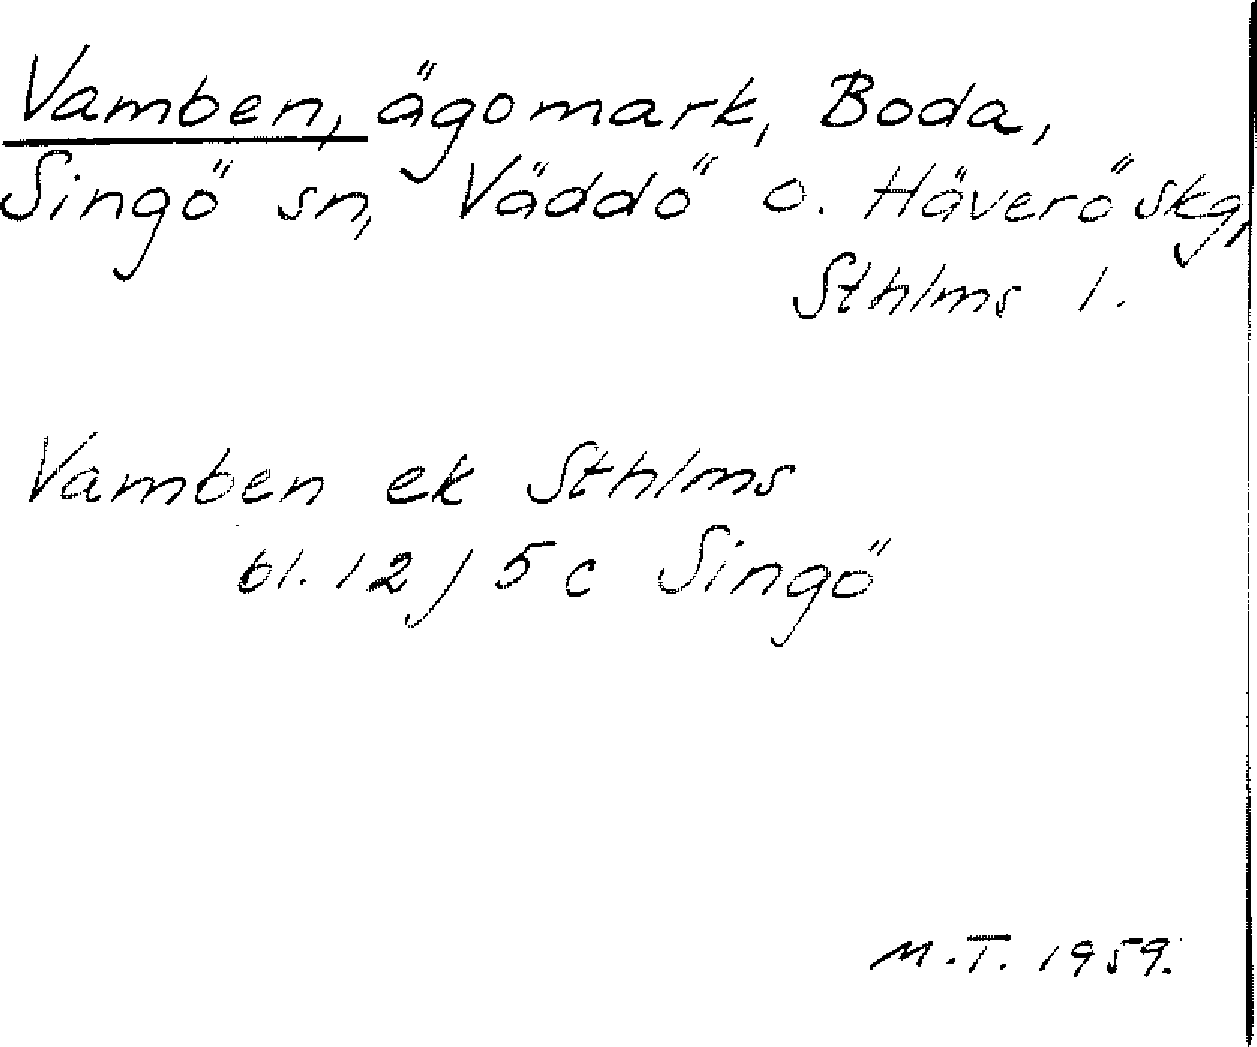 Vamben, ägomark, Boda,
Singö sn, Väddö o. Häverö skg,
Sthlms l.
Vamben ek Sthlms
bl. 12 / 5 c Singö
M.T. 1959.